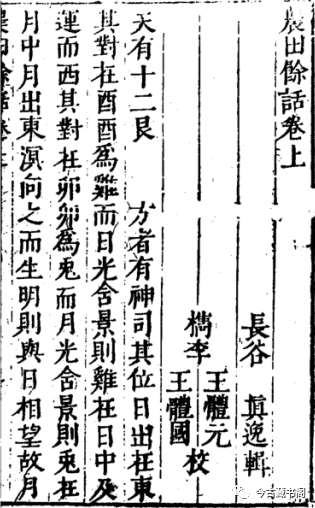 農田餘話卷上
長谷 眞逸輯
檇李 王體元 王體國 校
天有十二艮 方者有神司其位日出在東
其對在酉酉爲雞而日光含景則雞在日中及
運而西其對在卯卯爲兎而月光含景則兎在
月中月出東溟向之而生明則與日相望故月
今古藏书阁